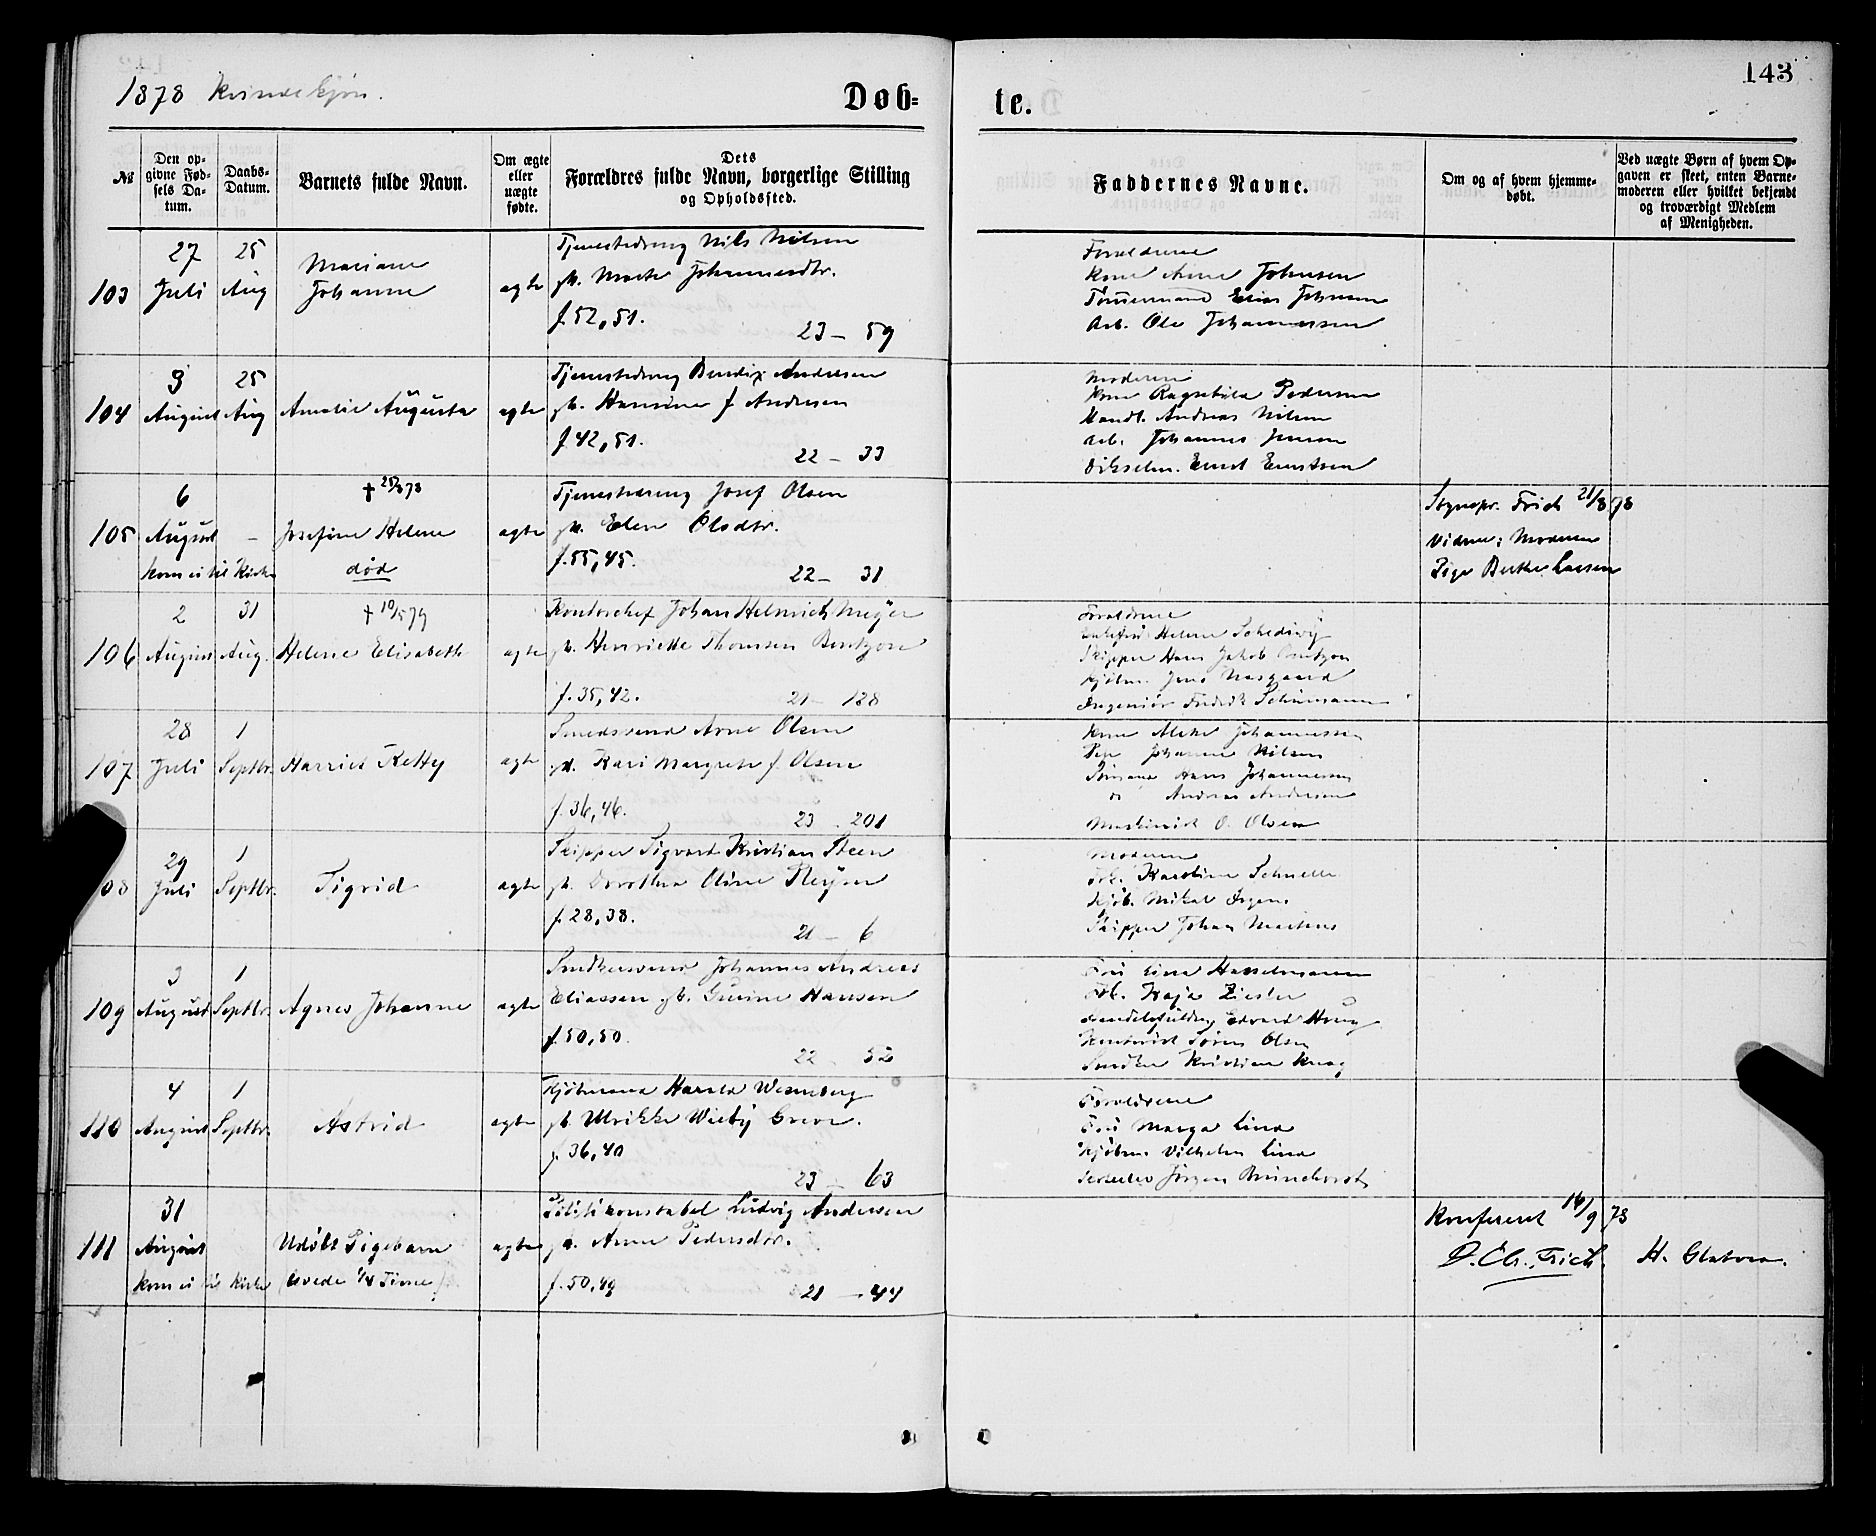 1878 Kvindekjøn.
Døb=
te.
143
№
Den op-
givne Fød-
sels Da-
tum.
Daabs-
Datum.
Barnets fulde Navn.
Om ægte
eller
uægte
fødte.
Dets
Forældres fulde Navn, borgerlige Stilling
og Opholdssted.
Faddernes Navne.
Om og af hvem hjemme-
døbt.
Ved uægte Børn af hvem Op-
gaven er skeet, enten Barne-
moderen eller hvilket bekjendt
og troværdigt Medlem
af Menigheden.
103
27
Juli
25
Aug
Mariane
Johanne
ægte
Tjenestedreng Nils Nilsen
Marte Johannesdtr.
f. 52, 51.
23 — 59
Forældrene
Kone Anne Johnsen
Tømmermand Elias Johnsen
Arb. Ole Johannessen
104
9
August
25
Aug
Amalie Augusta
ægte
Tjenestedreng Bendix Andresen
Hansine f Andersen
f 42, 51.
22 — 33
Moderen
Kone Ragnhild Pedersen
Handl. Andreas Nilsen
Arb. Johannes Jensen
Ernst Erntsen
105
6
August
—
kom ei til Kirke
† 25/8 78
Josefine Helene
død
ægte
Tjenestedreng Josef Olsen
Elen Olsdtr.
f. 55, 45.
22 — 31
Sognepr. Frich 21/8 78
Vidner: Moderen
Pige Berthe Larsen
106
2
August
31
Aug.
† 10/5 79
Helene Elisabeth
ægte
Kontorchef Johan Helmrich Meyer
Henriette Thomsen Bentzon
f. 35, 42.
21 — 128
Forældrene
Helene Schediwy
Skipper Hans Jakob Bentzon
Kjøbm. Jens Næsgaard
Ingeniør Fredrik Schiemann
107
28
Juli
1
Septbr.
Harriet Ketty
ægte
Smedsvend Arne Olsen
Kari Margrethe f. Olsen
f. 36, 46.
23 — 201
Kone Johannessen
Pige Johanne Nilsen
Sømand Hans Johannesen
Andreas Andersen
Maskinist O. Olsen
29
Juli
1
Septbr.
Sigrid
ægte
Skipper Sigvart Kristian Steen
Dorothea Oline
f. 28, 38.
21 — 6
Moderen
Frk. Karoline Schnelle
Kjøb. Mikal
Skipper Johan Martens
109
3
August
1
Septbr.
Agnes Johanne
ægte
Snedkersvend Johannes Andreas
Eliassen Gurine Hansen
f. 50, 50.
22 — 52
Fru Lina Hasselmann
Frk. Kaja Ziesler
Edvard Haug
Søren Olsen
Snedker Kristian Krag
110
4
August
1
Septbr.
Astrid
ægte
Kjøbmand Harald Wesneberg
Ulrikke Wieby Greve.
f. 36, 40
23 — 63
Forældrene
Fru Marga Lind
Kjøbm. Vilhelm Lind
Jørgen Brunchorst
111
31
August
kom ei til Kirke
Udøbt Pigebarn
levede 1/4 Time
ægte
Politikonstabel Ludvig Andersen
Anne Pedersdtr.
f. 50, 49
21 — 44
Konfereret 14/9 78
D. Ch. Frich.